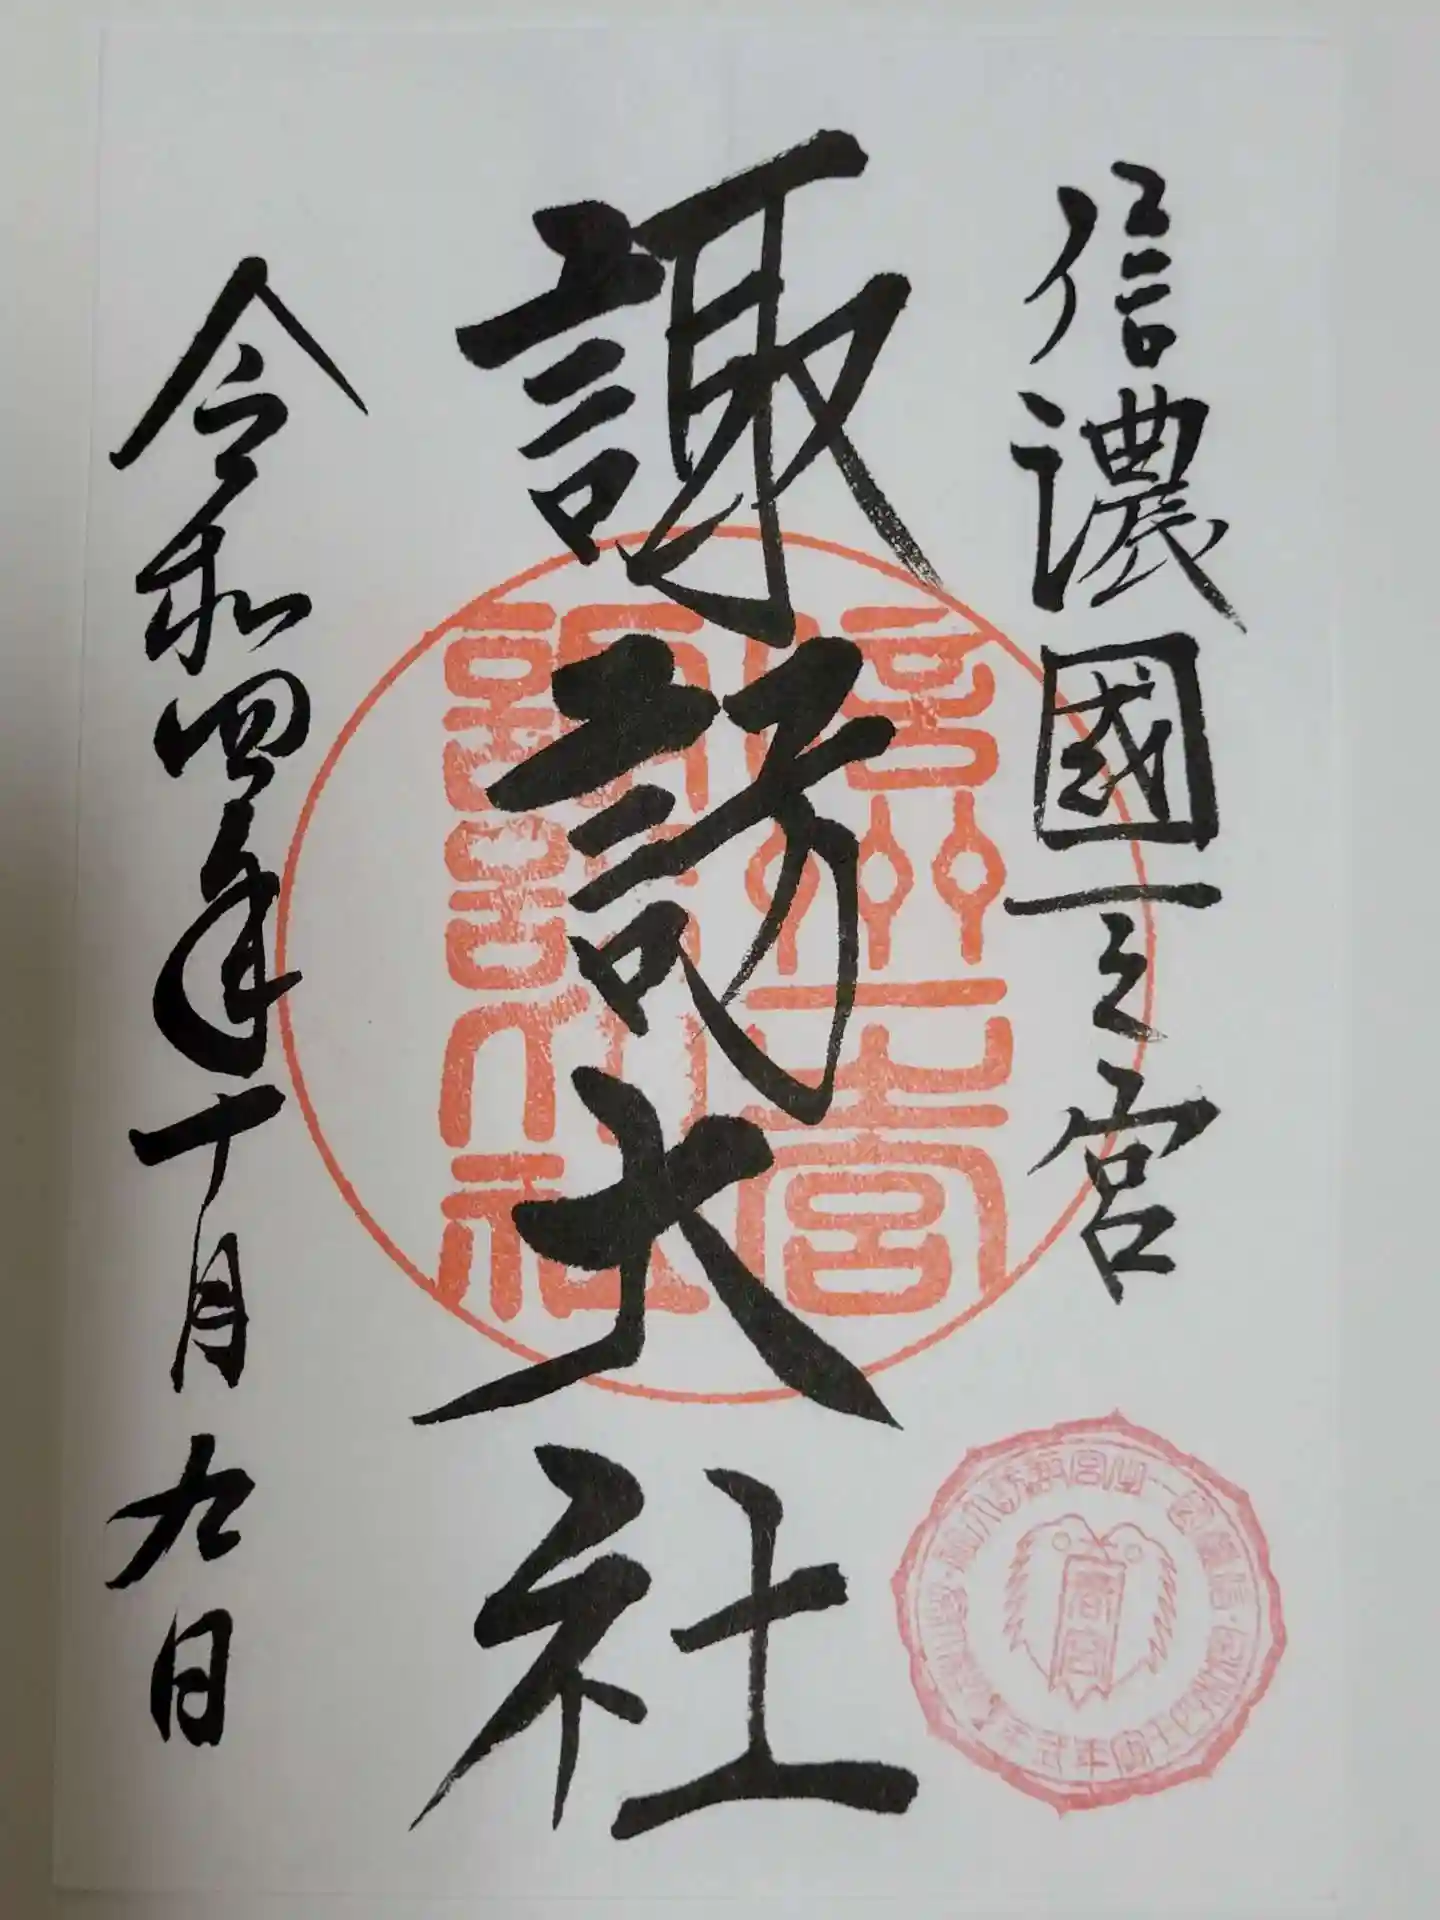 信濃國一之宮
諏訪大社
令和四年十月九日
信州一之宮
諏訪大社